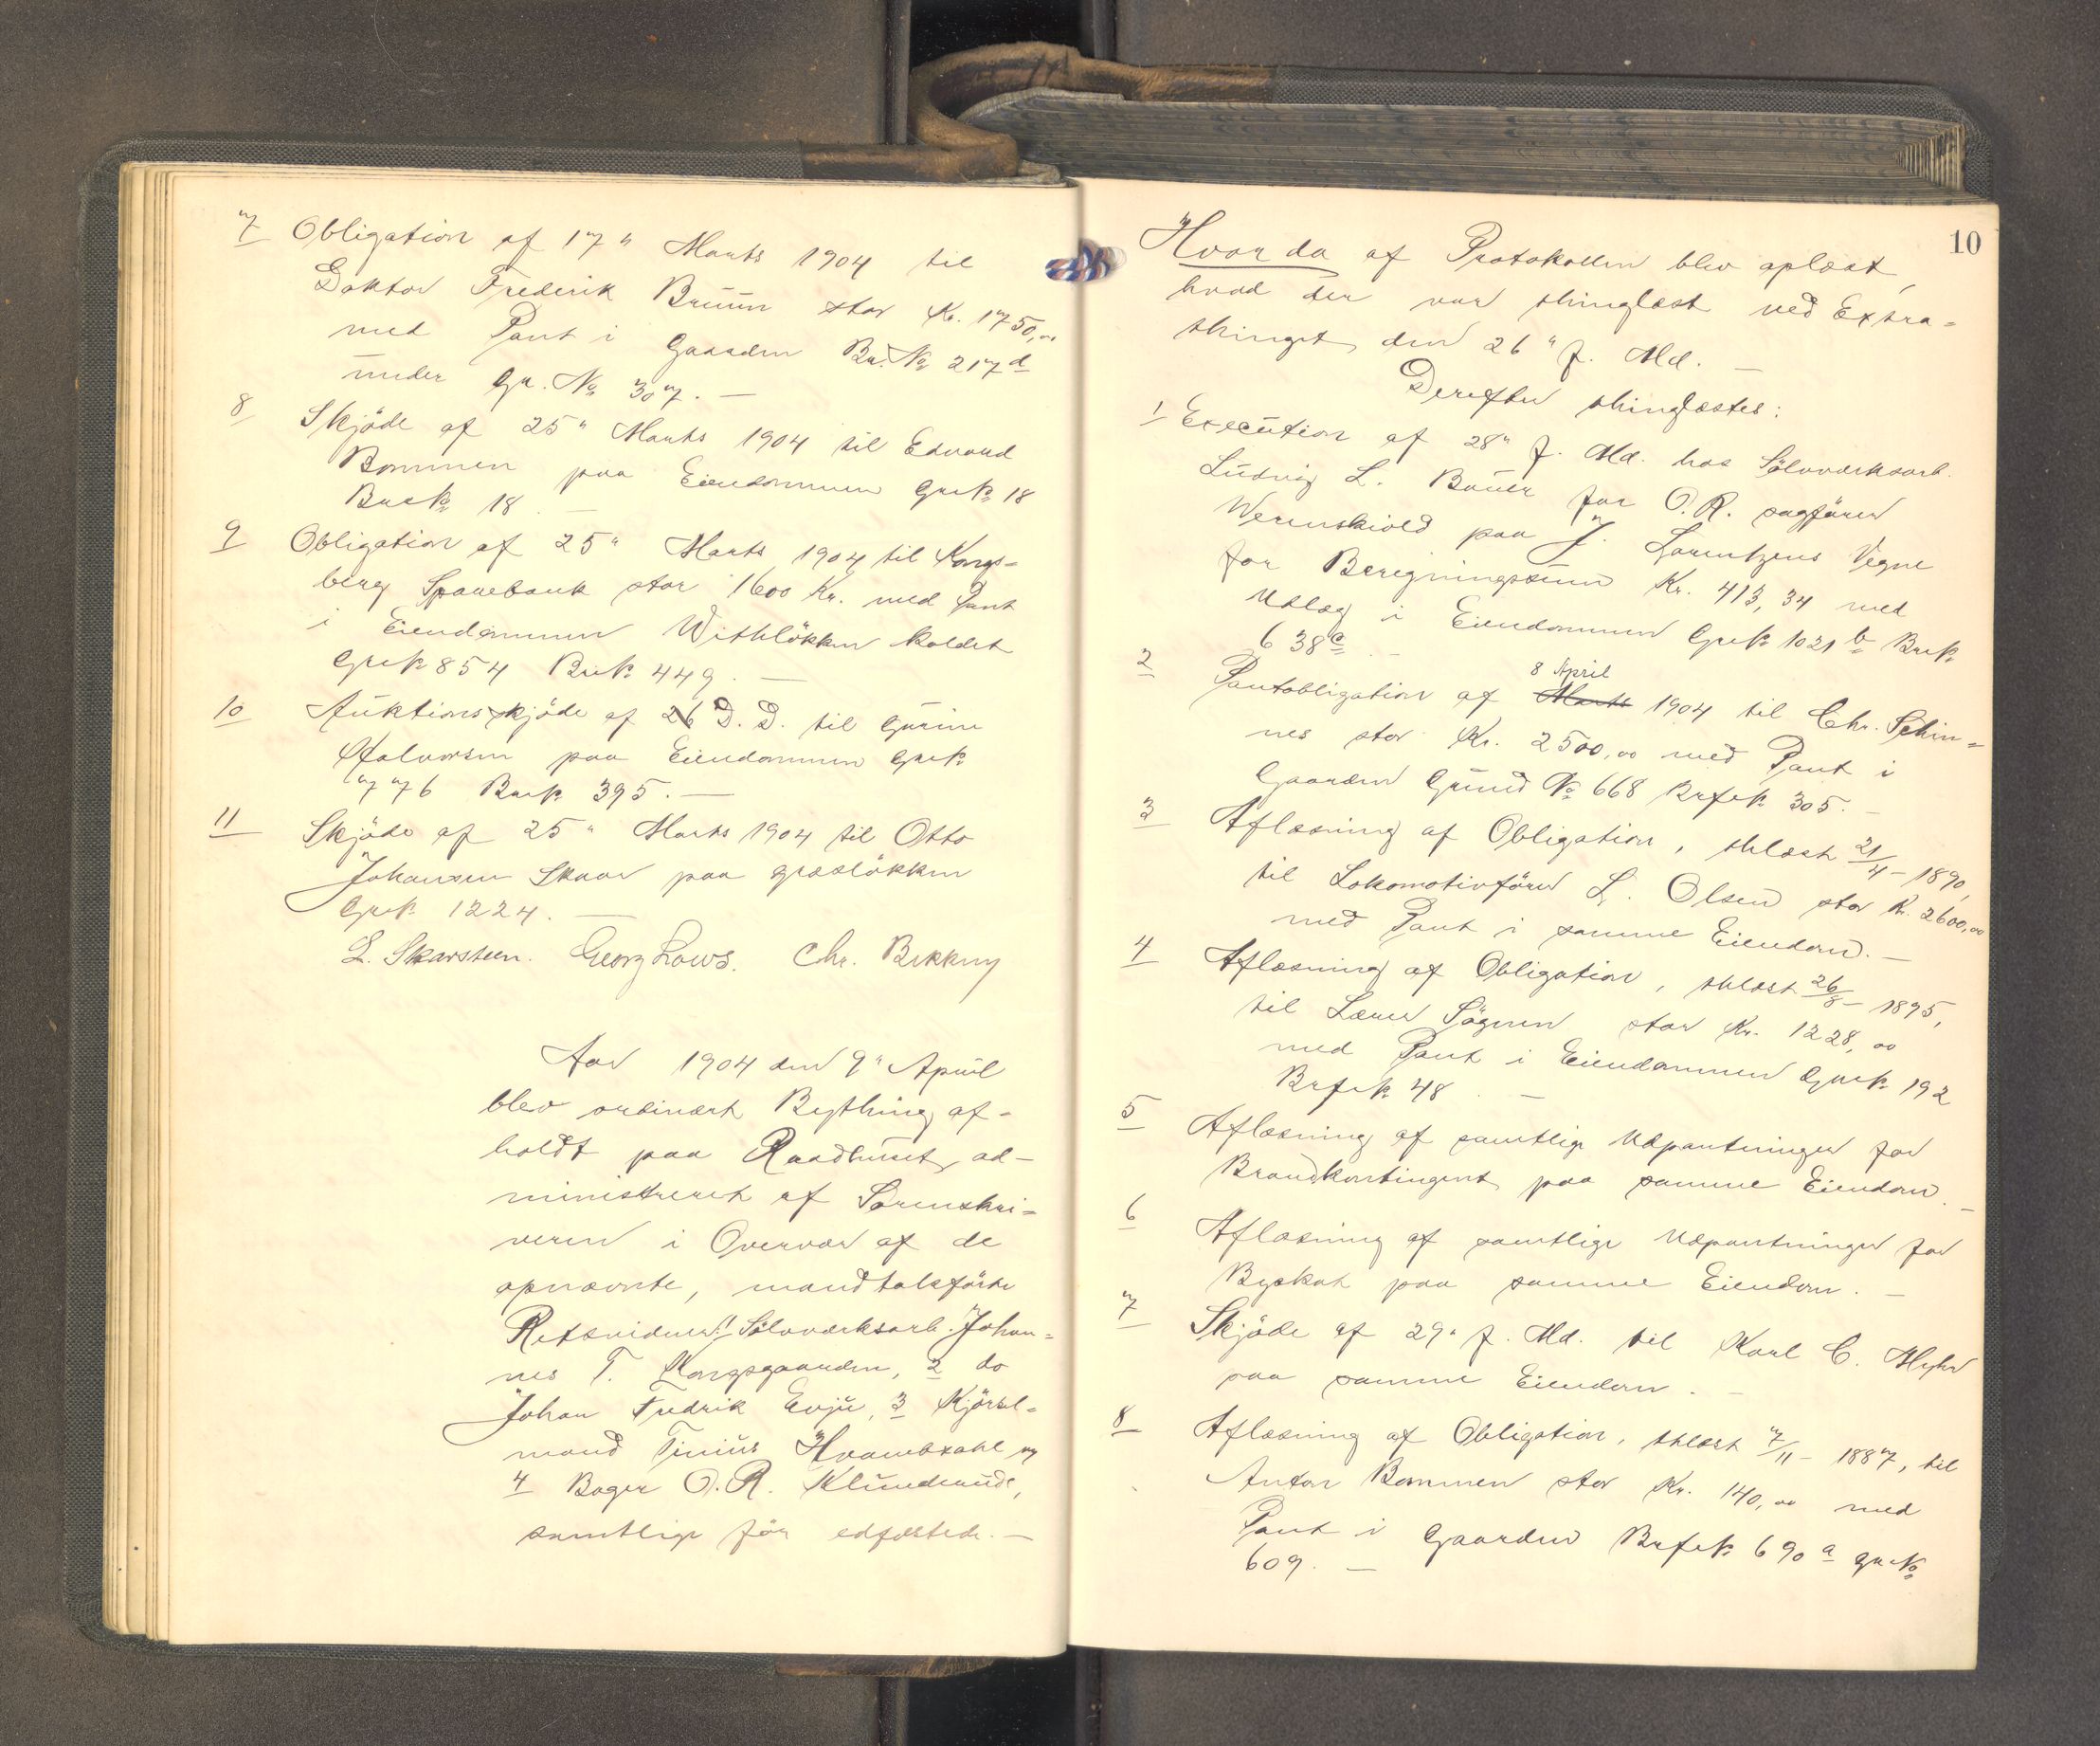 7 Obligation af 17" Marts 1904 til
Doktor Frederik Bruun stor Kr. 1750,00
med Pant i Gaarden Br. No 217 d
under Gr. No 307. —
8 Skjöde af 25" Marts 1904 til Edvard
Bommen paa Eiendommen Gr№ 18
Br№ 18. —
9 Obligation af 25" Marts 1904 til Kongs=
berg Sparebank stor 1600 Kr. med Pant
i Eiendommen Withlökken kaldet
Gr№ 854 Br№ 449. —
10 Auktionsskjöde af 26 D. D. til Gurine
Halvorsen paa Eiendommen Gr№
776 Br№ 395. —
11 Skjöde af 25" Marts 1904 til Otto
Johansen Skaar paa græslökken
Gr№ 1224. —
L. Skarsteen. Georg Lows. Chr. Bekkny
Aar 1904 den 9" April
blev ordinært Bything af=
holdt paa Raadhuset, ad=
ministreret af Sorenskri=
veren i Overvær af de
opnævnte, mandtalsförte
Retsvidner: 1 Sölvværksarb. Johan=
nes T. Kongsgaarden, 2 do
Johan Fredrik Evju, 3 Kjörsel=
mand Tinius Hvambsahl og
4 Bager O. R. Klunderud,
samtlige för edfæstede. —
10
Hvor da af Protokollen blev oplæst,
hvad der var thinglæst ved Extra=
thinget den 26" f. Md. —
Derefter thinglæstes:
1 Execution af 28" f. Md. hos Sölvværksarb.
Ludvig L. Bauer for O. R. sagförer
Werenskiold paa J. Lorentzens Vegne
for Beregningssum Kr. 413,34 med
Udlæg i Eiendommen Gr№ 1021 b Br№
638 c —
8 April
2 Pantobligation af Marts 1904 til Chr. Schin=
nes stor Kr. 2500,00 med Pant i
Gaarden Grund No 668 Brf№ 305. —
3 Aflæsning af Obligation, thlæst 21/4 - 1890,
til Lokomotivförer L. Olsen stor Kr. 2600,00
med Pant i samme Eiendom. —
4 Aflæsning af Obligation, thlæst 26/8 - 1895,
til Lærer Sögnen stor Kr. 1228,00
med Pant i Eiendommen Gr№ 192
Brf№ 48. —
5 Aflæsning af samtlige Udpantninger for
Brandkontingent paa samme Eiendom. —
6 Aflæsning af samtlige Udpantninger for
Byskat paa samme Eiendom. —
7 Skjöde af 29" f. Md. til Karl C. Myhr
paa samme Eiendom. —
8 Aflæsning af Obligation, thlæst 7/11 - 1887, til
Anton Bommen stor Kr. 140,00 med
Pant i Gaarden Brf№ 690 a Gr No
609. —